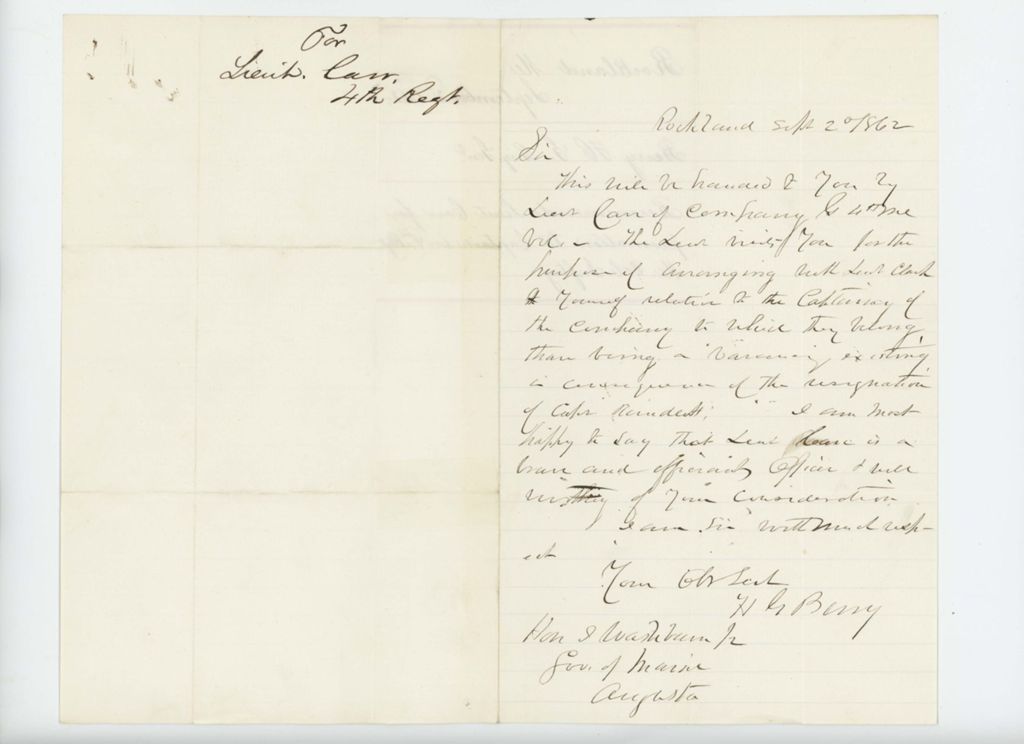 For
Lieut. Carr.
4th Regt.
Rockland Sept 20/862
Sir
This will be handed to You by
Lieut Carr of Company G 4th Me
Vols - The Lieut visits You for the
purpose of arranging with Lieut Clark
& Yourself relative to the Captaincy of
the Company to which they belong
thare being a Vacancy existing
in consequence of the resignation
of Capt I am most
happy to say that Lieut is a
brave and efficient Officer & well
worthy of Your Consideration
I am Sir with much resp-
ect
Your Obt Servt
H G Berry
Hon I Washburn Jr
Gov. of Maine
Augusta